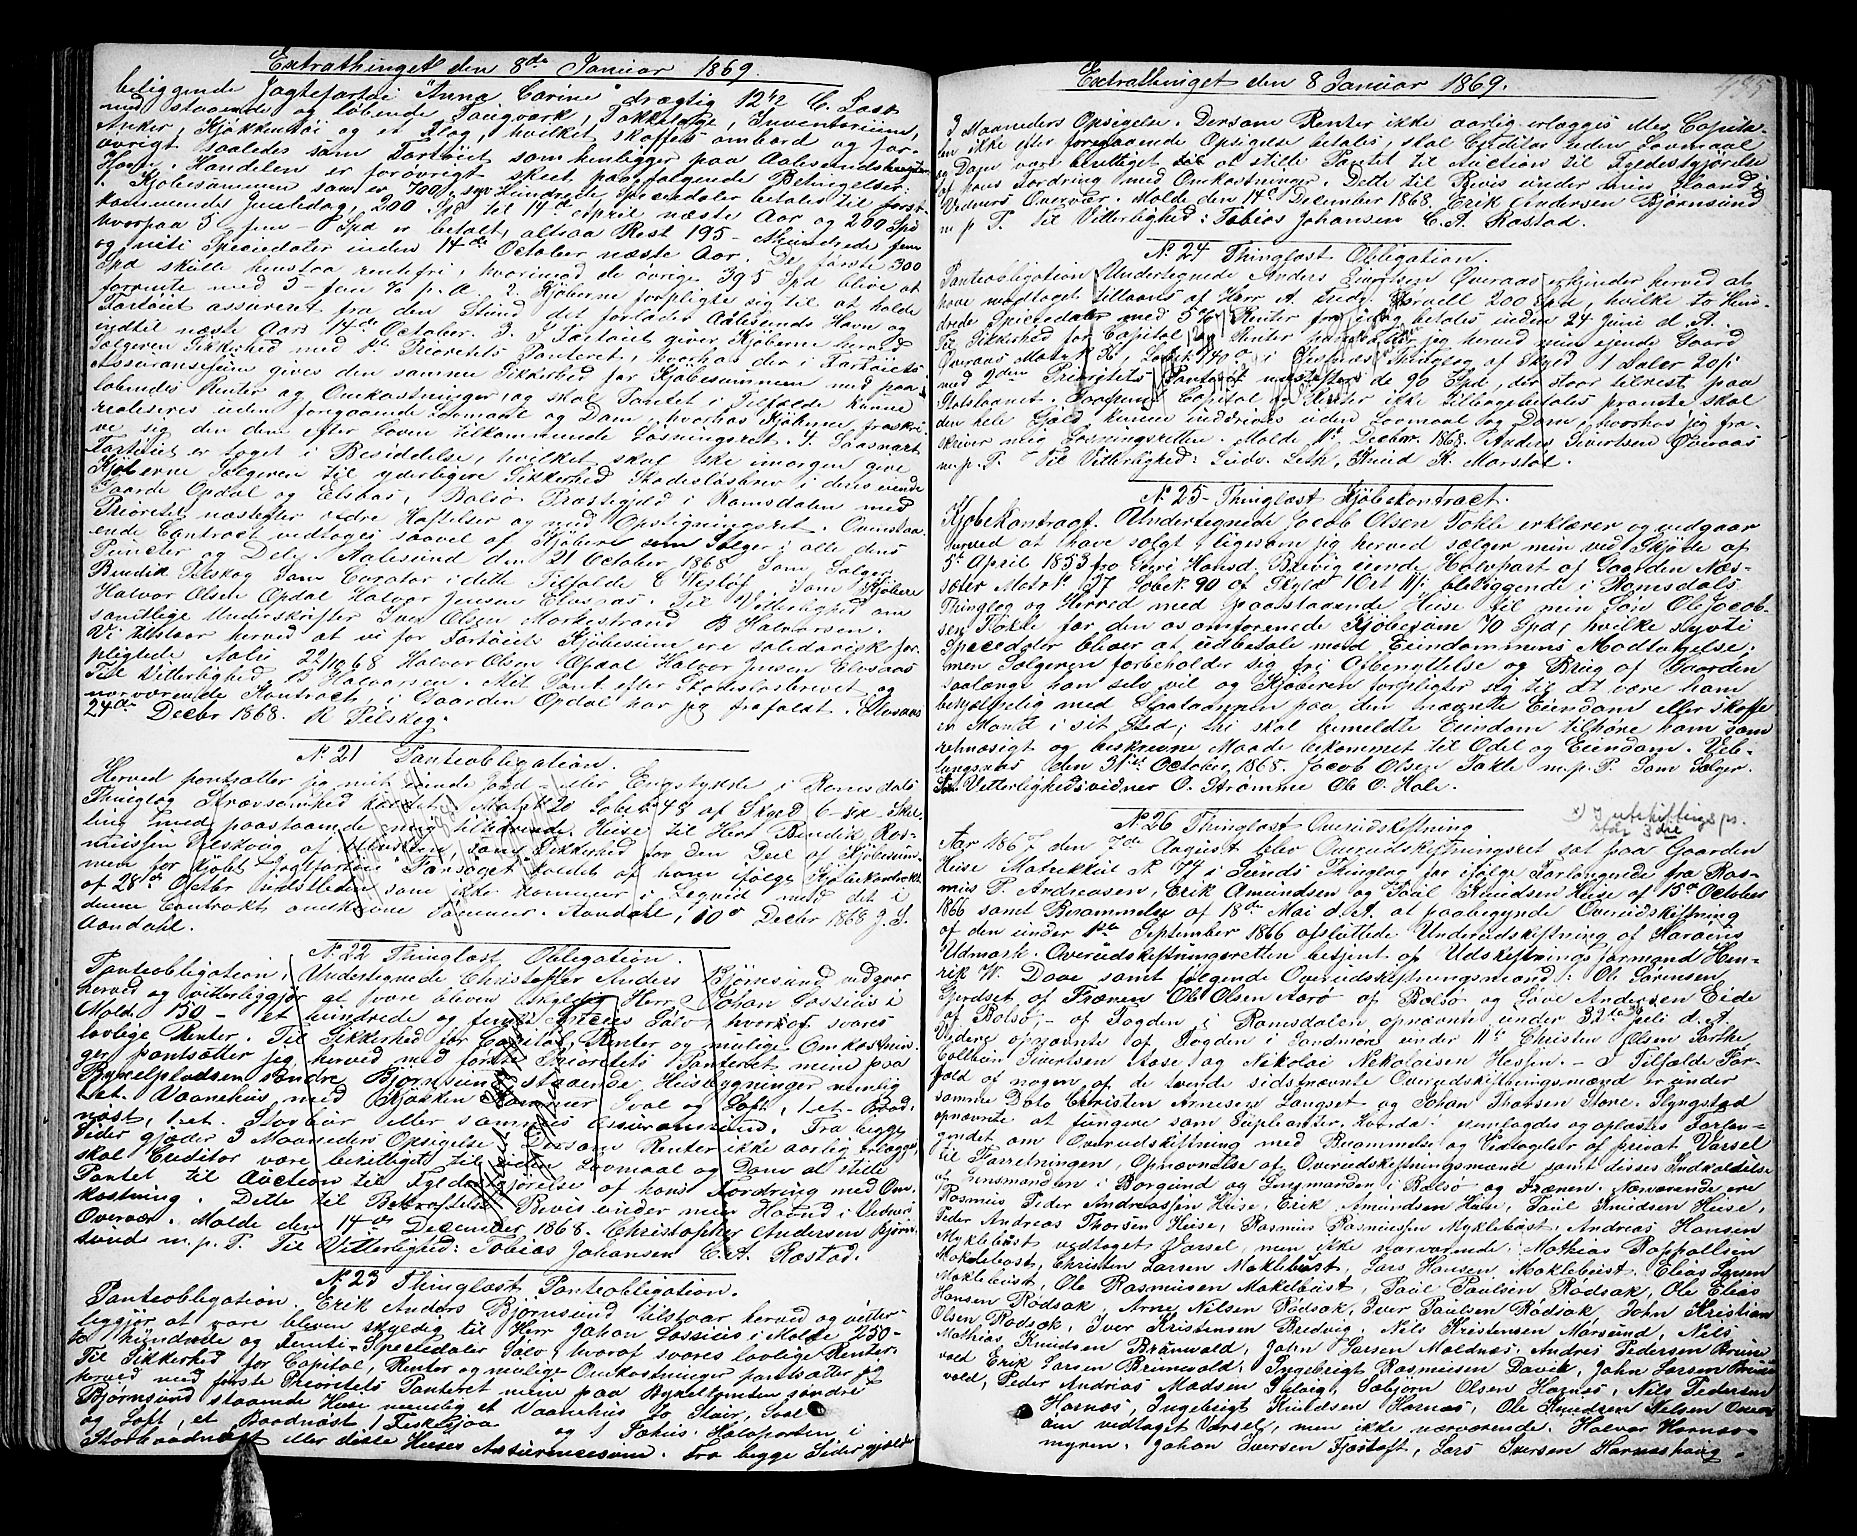 Extrathinget den 8de Januar 1869.
beliggende Jagtefartøi "Anna Carine" drægtig 12½ C. Læst
med staaende og løbende Taugværk, Takkelage, Inventarium,
Anker, Kjøkkentøi og et Flag, hvilket skaffes ombord og for-
øvrigt saaledes som Fartøiet som henligger paa Aalesunds
Havn. Handelen er forøvrigt skeet paa følgende Betingelser:
1. Kjøbesummen som er 700 syv Hundrede Speciedaler betales til først-
kommende Juuledag, 200 Spd til 14de April næste Aar og 200 Spd
hvorpaa 5 fem Spd er betalt, altsaa Rest 195 Ethundrede fem
og niti Speciedaler inden 14de October næste Aar. De første 300
Spd skulle henstaa rentefri, hvorimod de øvrige 395 Spd blive at
forrente med 5 fem % p. A. 2. Kjøberne forpligte sig til at holde
Fartøiet assureret fra den Stund det forlader Aalesunds Havn og
indtil næste Aars 14de October. 3. I Fartøiet giver Kjøberne herved
Sælgeren Sikkerhed med 1st Prioritets Panteret, hvorhos der i Fartøiets
Assuransesum gives den samme Sikkerhed for Kjøbesummen med paa-
løbende Renter og Omkostninger og skal Pantet i Tilfælde kunne
realiseres uden foregaaende Lovmaal og Dom, hvorhos Kjøberne fraskri-
ve sig den dem efter Loven tilkommende Løsningsret. 4. Saasnart
Fartøiet er taget i Besiddelse, hvilket skal ske imorgen give
Kjøberne Sælgeren til yderligere Sikkerhed Skadesløsbrev i deres eiende
Gaarde Opdal og Elvsaas, Bolsø Præstegjeld i Romsdalen med
Prioritet næstefter ældre Heftelser og med Opstigningsret. Ovenstaa-
ende Contract vedtages saavel af Kjøbere som Sælger i alle dens
Puncter og Dele. Aalesund den 21 October 1868 Som Sælger
Bendik Pilskog Som Curator i dette Tilfælde E Som Kjøbere
Halvor Olsen Opdal Halvor Jensen Elvsaas. Til Vitterlighed om
samtlige Underskrifter Iver Olsen Markestrand B Halvorsen.
Vi tilstaar herved at vi for Fartøiets Kjøbesum ere solidarisk for-
pligtede Aals 22/10 68 Halvor Olsen Opdal Halvor Jensen Elvsaas
Til Vitterlighed B Halvorsen. Mit Pant efter Skadesløsbrevet og
nærværende Kontract i Gaarden Opdal har jeg frafaldt. Elvsaas
24de Decbr 1868. R Pilskog.
N. 21 Panteobligation.
Herved pantsætter jeg mit eiende Jord- eller Engstykke i Romsdals
Thinglag kaldet Matr. N. 20 Løbe N. 48 af Skyld 6 - sex Skil-
ling med paastaaende mig tilhørende Huse til Herr Bendik Ras-
mussen Pilskog af som Sikkerhed for den Deel af Kjøbesum-
men for Kjøbt Jagtfartøi "Forsøget" solgt af ham ifølge Kjøbekontrakt
af 28de Octbr sidstleden som ikke kommer i Legvid med det i
denne Contrakt omskrevne Summer. Aandahl, 10de Decbr 1868 J. S.
Aandahl.
N. 22 Thinglæst Obligation.
Panteobligation. Undertegnede Christoffer Anders Bjørnsund vedgaar
herved og vitterliggjør at være bleven skyldig Herr Johan Dossius i
Molde 150 - et hundrede og femti Species Sølv, hvoraf svares
lovlige Renter. Til Sikkerhed for Capital, Renter og mulige Omkostnin-
ger pantsætter jeg herved med første Prioritets Panteret mine paa
Byxelpladsen søndre Bjørnsund staaende Huusbygninger nemlig
1 et Vaanehus med Kjøkken Kammer Sval og Loft, 1 et Baad-
nøst, 1 et Stovbur eller sammes Assuransesum. Fra begge
Sider gjælder 3 Maaneders Opsigelse. Dersom Renter ikke aarlig erlægges
skal Creditor være berettiget til uden Lovmaal og Dom at stille
Pantet til Auction til Fyldestgjørelse af hans Fordring med Om-
kostning. Dette til Bekræftelse Bevis under min Haand i Vedners
Overvær. Molde den 14de December 1868. Christopher Andersen Bjørn-
sund m. p. P. Til Vitterlighed: Tobias Johansen C. A. Rostad.
N. 23 Thinglæst Panteobligation.
Panteobligation. Erik Anders Bjørnsund tilstaar herved og vitter-
liggjør at være bleven skyldig til Herr Johan Dossius i Molde 250 -
to hundrede og femti Speciedaler Sølv hvoraf svares lovlige Renter.
Til Sikkerhed for Capital, Renter og mulige Omkostninger pantsætter jeg
herved med første Prioritets Panteret mine paa Byxeltomten søndre
Bjørnsund staaende Huse nemlig et Vaanehus to Stuer, Sval
og Loft, et Baadnøst 1 Fiskesjaa og 1 Fæhus Halvparten i
Storbaadnøst eller disse Huses Assurancesum. Fra begge Sider gjælder
Extrathinget den 8 Januar 1869.
435
3 Maaneders Opsigelse. Dersom Renter ikke aarlig erlægges eller Capita-
len ikke efter foregaaende Opsigelse betales, skal Creditor uden Lovmaal
og Dom være berettiget til at stille Pantet til Auction til Fyldestgjørelse
af hans Fordring med Omkostninger. Dette til Bevis under min Haand i
Vedners Overvær. Molde den 14de December 1868. Erik Andersen Bjørnsund
m. p. P. Til Vitterlighed: Tobias Johansen C. A. Rostad.
N. 24 Thinglæst Obligation.
Panteobligation Undertegnede Anders Sivertsen Øveraas erkjender herved at
have modtaget tillaans af Herr A. 200 Spd, hvilke to Hun-
drede Speciedaler med 5% Renter fra idag betales inden 24 Juni d. A.
Til Sikkerhed for Capital og Renter pantsætter jeg herved min eiende Gaard
Øveraas Matr N. 36, Løbe N. 140 i Thinglag af Skyld 1 Daler 20 ß
med 2den Prioritets Panteret næstefter de 90 Spd, der staar tilrest paa
Statslaanet. Saafremt Capital og Renter ikke tilbagebetales præcise skal
den hele Gjæld kunne inddrives uden Lovmaal og Dom, hvorhos jeg fra-
skriver mig Løsningsretten. Molde 11te Decbr. 1868. Anders Sivertsen Øveraas
m. p. P. Til Vitterlighed: Ludv. Leth, Knud K. Marstøl.
N. 25 - Thinglæst Kjøbekontract.
Kjøbekontract. Undertegnede Jacob Olsen Tokle erklærer og vedgaar
herved at have solgt ligesom jeg herved sælger min ved Skjøde af
5te April 1853 fra Hansd. Brevig eiende Halvpart af Gaarden Næs-
sæter Matr N. 127 Løbe N. 90 af Skyld 1 Ort 11 ß beliggende i Romsdals
Thinglag og Herred med paastaaende Huse til min Søn Ole Jacob-
sen Tokle for den os omforenede Kjøbesum 70 Spd, hvilke syvti
Speciedaler bliver at udbetale med Eiendommens Modtagelse;
men Sælgeren forbeholder sig fri Afbenyttelse og Brug af Gaarden
saalænge han selv vil og Kjøberen forpligter sig til at være ham
behjælpelig med paa den nævnte Eiendom eller skaffe
en Mand i sit Sted; thi skal bemeldte Eiendom tilhøre ham som
retmæssigt og beskreven Maade bekommet til Odel og Eiendom. Veb-
lungsnæs den 31te October 1868. Jacob Olsen Tokle m. p. P. Som Sælger.
Til Vitterlighedsvidner O. Strømme Ole O. Hole.
N. 26 Thinglæst Overudskiftning.
x) I udskiftings pr.
står 3die
Aar 1867 den 7de August blev Overudskiftningsret sat paa Gaarden
Heise Matrikkul N. 174 i Sunds Thinglag for ifølge Forlangende fra Ras-
mus P. Andreasen, Erik Amundsen og Paul Knudsen Heise af 15de October
1866 samt Berammelse af 18de Mai d. A. at paabegynde Overudskiftning
af den under 1ste September 1866 afsluttede Underudskiftning af Harøens
Udmark. Overudskiftningsretten besjent af Udskiftningsformand Hen-
rik W. Dave samt følgende Overudskiftningsmænd: Ole Sørensen
Gjerdset af Frænen Ole Olsen Aarø af Bolsø og Lave Andersen Eide
af Bolsø, - af Fogden i Romsdalen opnævnte under 3 Juli d. A.
Videre opnævnte af Fogden i Søndmøre under 11te Christen Olsen Farthe
Colban Sivertsen Aase og Nikolai Nikolaisen Hessen. - I Tilfælde For-
fald af nogen af de tvende sidstnævnte Overudskiftningsmænd er under
samme Dato Christen Arnesen Langset og Johan Thorsen Store-Slyngstad
opnævnte at fungere som Supleanter. Forda: fremlagdes og oplæstes Forlan-
gendet om Overudskiftning med Berammelse og Vedtagelse af privat Varsel
til Forretningen, Opnævnelse af Overudskiftningsmænd samt disses Indkaldelse
af Lensmanden i Borgund og Lensmanden i Bolsø og Frænen. Nærværende ere
Rasmus Peder Andreassen Heise, Erik Amundsen Heise, Paul Knudsen Heise,
Peder Andreas Thorsen Heise, Rasmus Rasmussen Myklebust, Andreas Hansen
Myklebust vedtaget Varsel, men ikke nærværende: Mathias Poppelsen
Maklebust, Christen Larsen Maklebust, Lars Hansen Maklebust. Elias Larsen
Maklebust, Ole Rasmussen Maklebust, Paul Paulsen Rødsæk, Ole Elias
Hansen Rødsæk, Arne Nilsen Rødsæk, Iver Paulsen Rødsæk, John Kristian
Olsen Rødsæk, Iver Kristensen Bredvig, Nils Kristensen Morsund, Nils
Mathias Knudsen Brunvold, John Larsen Moldnæs, Andres Pedersen Brune-
vold Erik Larsen Brunvold, Ingebrigt Rasmussen Davik, John Larsen Brune-
vold, Peder Andreas Madsen Sæbjørn Olsen Harnæs, Nils Pedersen
Harnæs, Ingebrigt Knudsen Harnæs, Ole Knudsen Nelsen
vedtaget Varsel, men ikke nærværende. Halvor Harnæs-
myren. Johan Iversen Fjørtoft, Lars Iversen Harnæshaug.